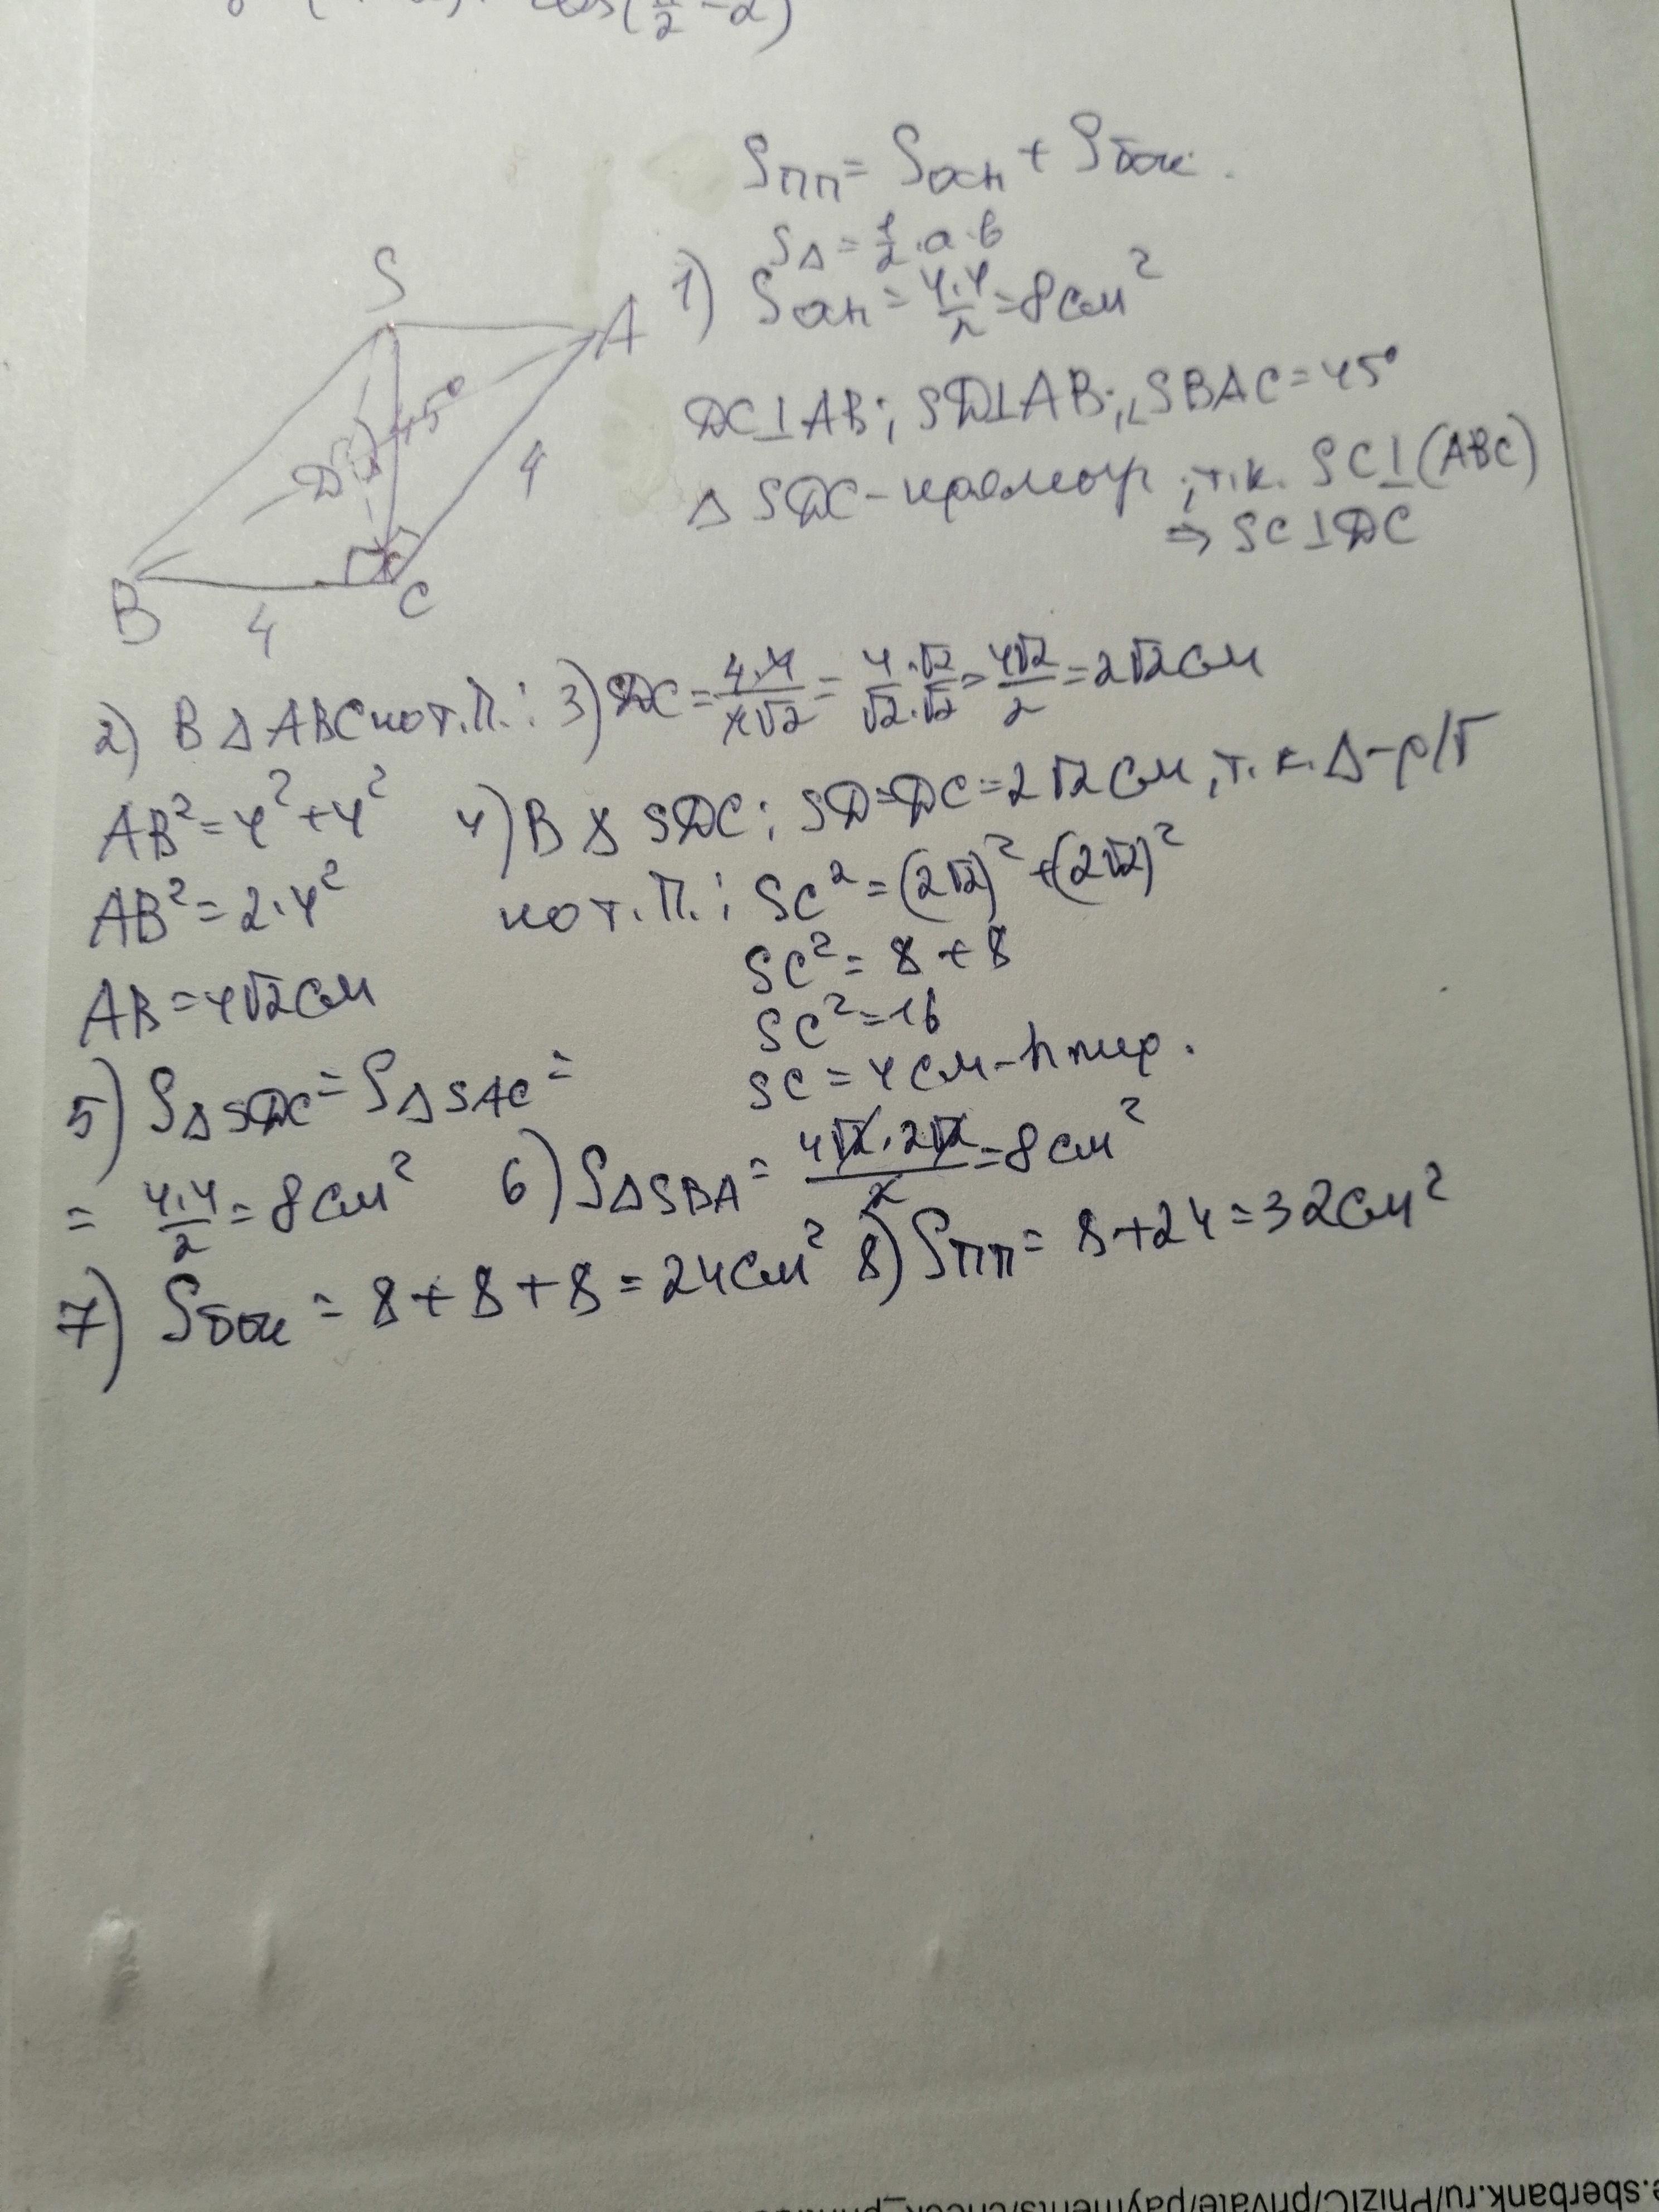 cos(π/2 - α)
Sпп = Sосн + Sбок.
S△ = 1/2 · a · b
1) Sосн = 4·4/2 = 8 см²
S
A
45°
D
4
B
C
4
DC⊥AB; SD⊥AB; ∠SBAC = 45°
△ SDC - прямоуг, т.к. SC⊥(ABC)
⇒ SC⊥DC
2) В △ ABC по т.П.:
AB² = 4² + 4²
AB² = 2·4²
AB = 4√2 см
3) DC = 4·4/4√2 = 4·√2/√2·√2 = 4√2/2 = 2√2 см
4) В △ SDC: SD = DC = 2√2 см, т.к. △ - р/б
по т.П.: SC² = (2√2)² + (2√2)²
SC² = 8 + 8
SC² = 16
SC = 4 см - h пир.
5) S△SDC = S△SAC =
= 4·4/2 = 8 см²
6) S△SBA = 4√2·2√2/2 = 8 см²
7) Sбок = 8 + 8 + 8 = 24 см²
8) Sпп = 8 + 24 = 32 см²
e.sberbank.ru/PhizIC/private/payments/check_print